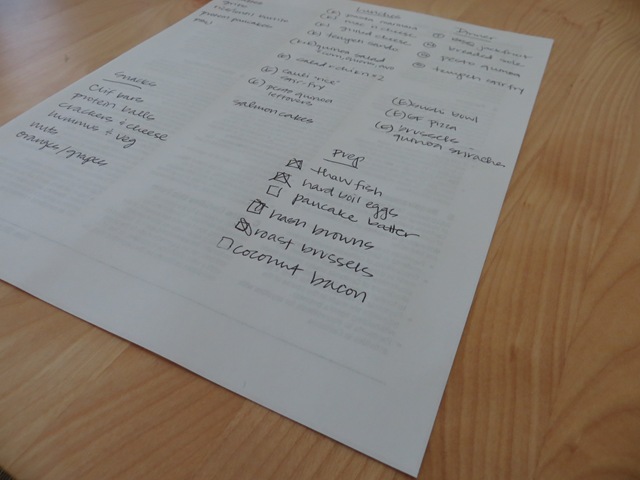 protein pancakes
Lunches
grilled cheese
tempeh sando
quinoa salad
salad + chix x 2
stir-fry
pesto quinoa
leftovers
salmon cakes
Dinner
breaded sole
pesto quinoa
tempeh stir-fry
sushi bowl
GF pizza
brussels
quinoa sriracha
Snacks
Clif bars
protein balls
crackers & cheese
hummus & veg
nuts
oranges/grapes
Prep
thaw fish
hard boil eggs
pancake batter
hash browns
roast brussels
coconut bacon